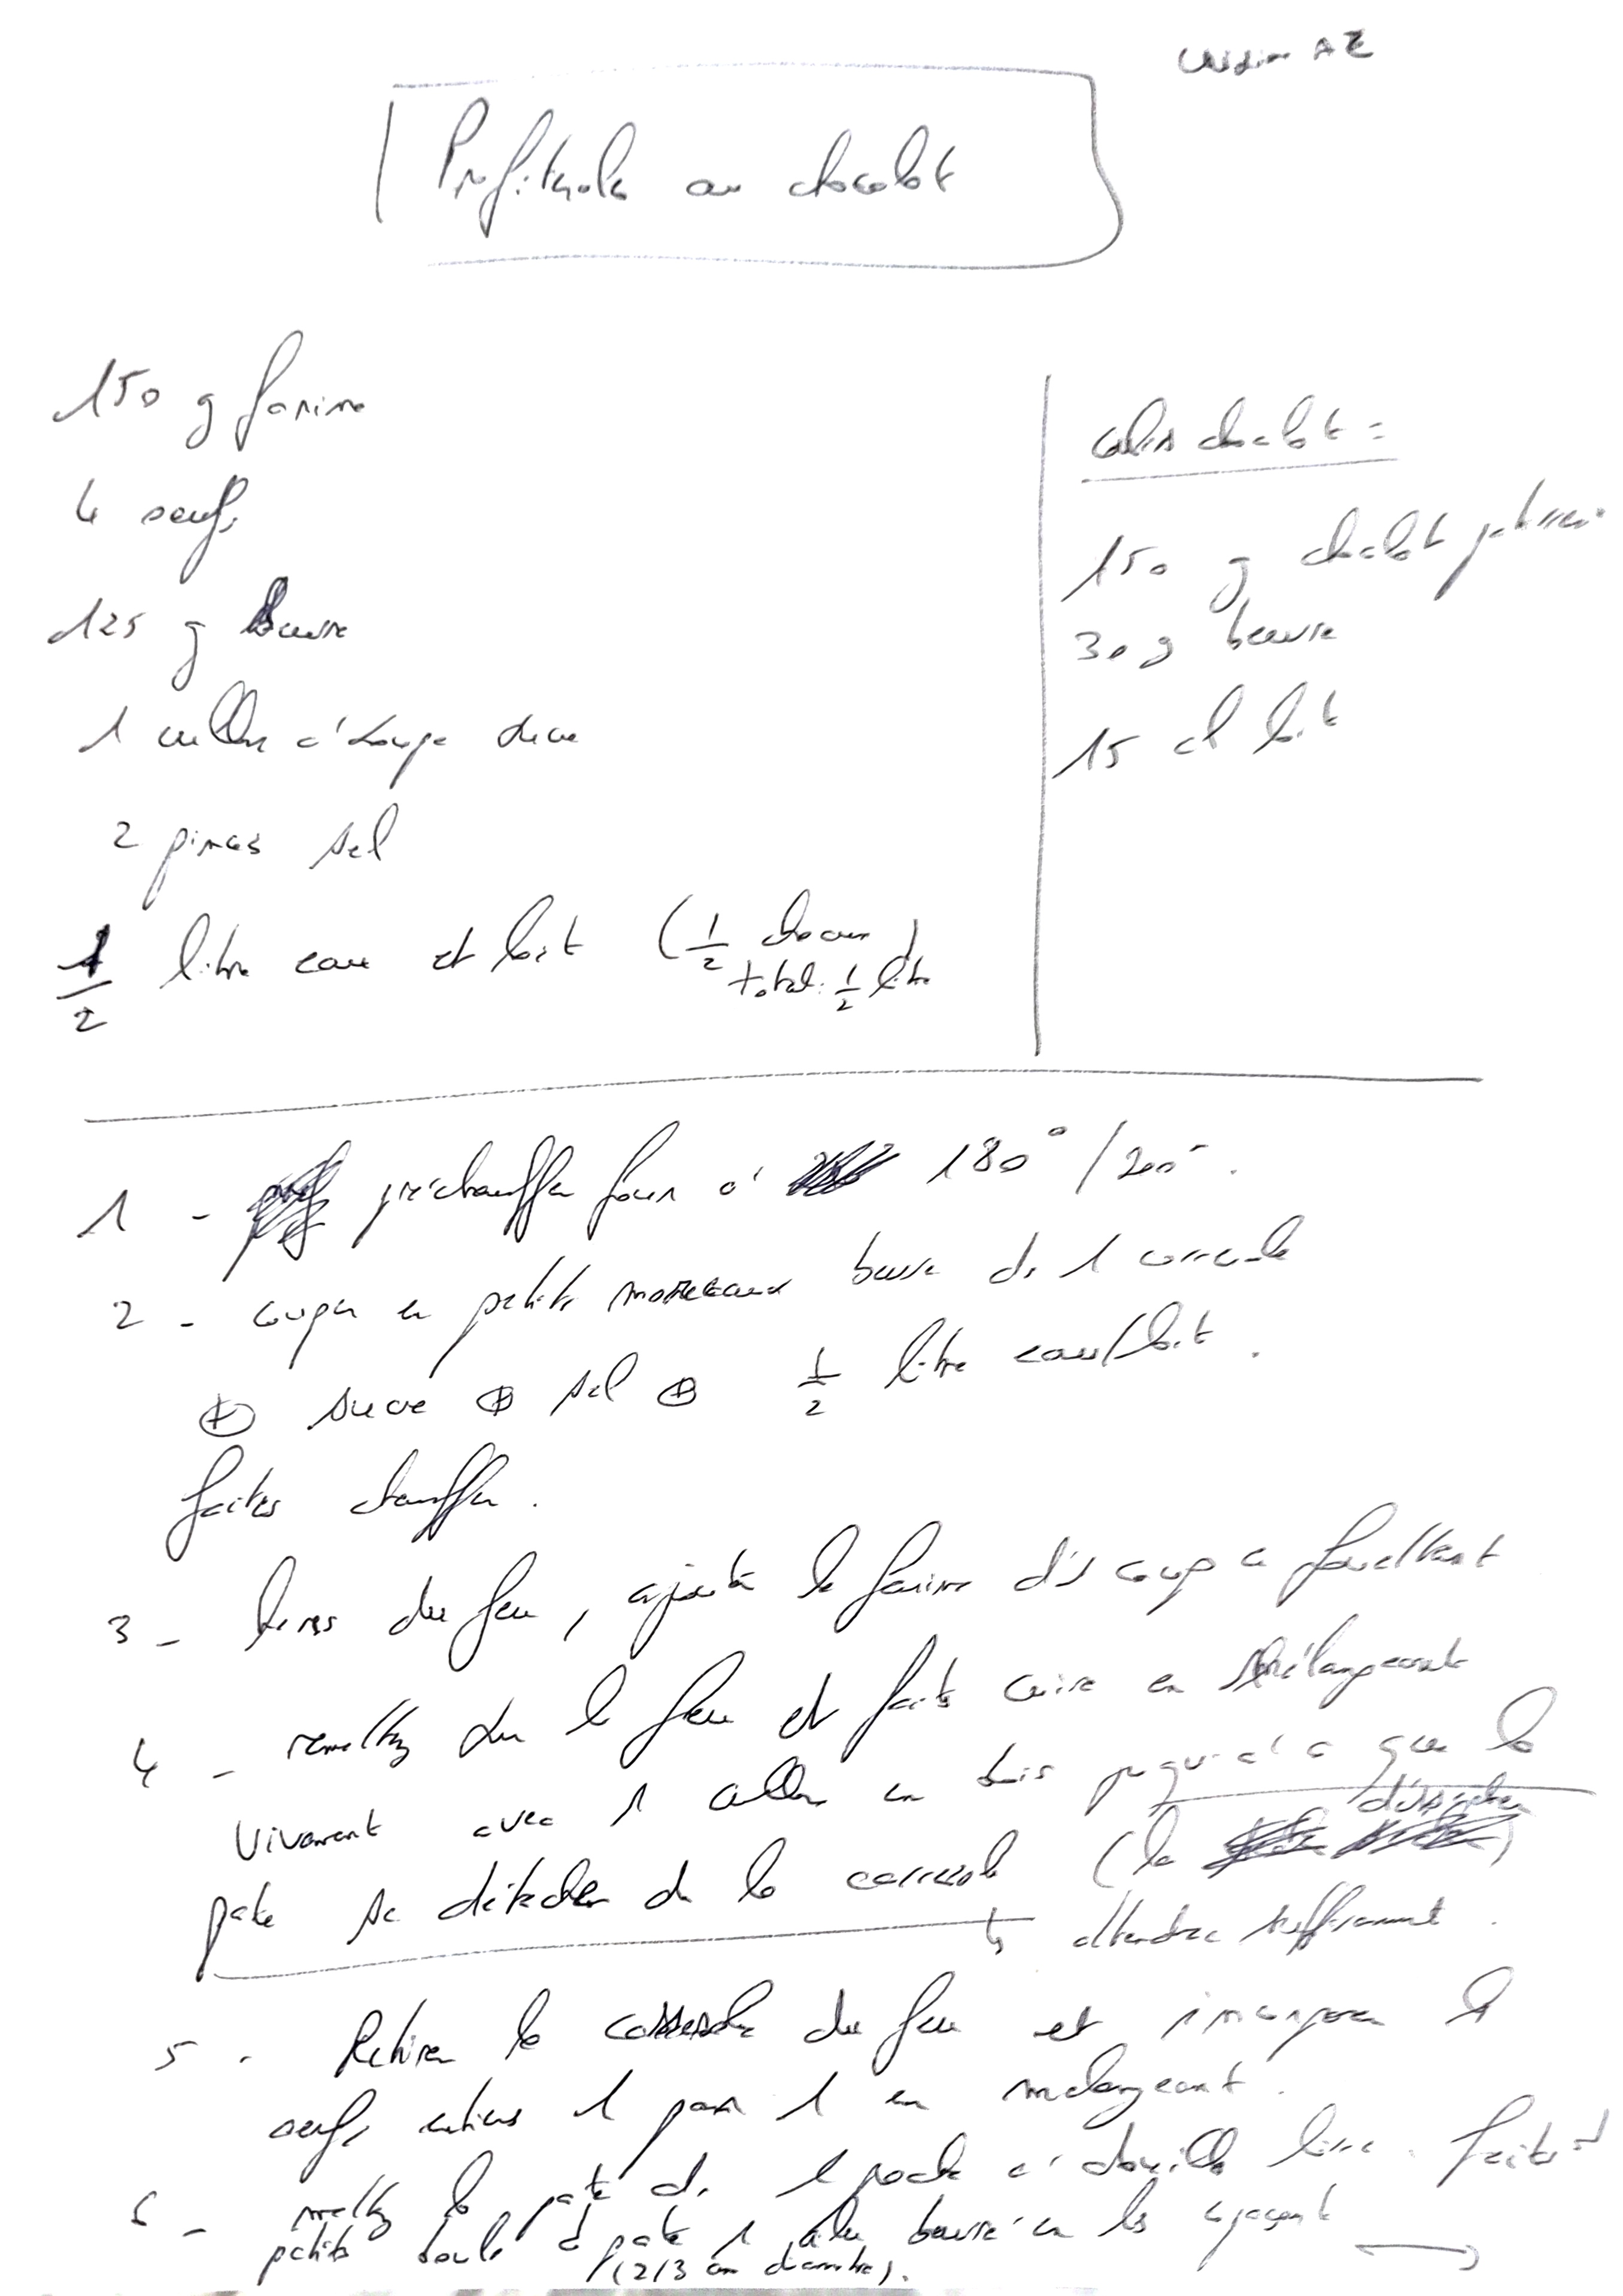 Cuisine AZ
Profiterole au chocolat
150 g farine
4 oeufs
125 g beurre
1 cuiller à soupe sucre
2 pinces sel
1/2 litre eau et lait (1/2 chacun)
total: 1/2 litre
coulis chocolat =
150 g chocolat patissier
30 g beurre
15 cl lait
1 - préchauffer four à 180° / 200°.
2 - couper en petits morceaux beurre ds 1 casserole
⊕ sucre ⊕ sel ⊕ 1/2 litre eau/lait.
faites chauffer.
3 - hors du feu, ajouter la farine d'1 coup en fouettant
4 - remettez sur le feu et faites cuire en mélangeant
vivement avec 1 cuiller en bois jusqu'à ce que la
dessécher
pate se détache de la casserole (la )
↳ attendre suffisamment.
5 - Retirer la casserole du feu et incorporer les
oeufs entiers 1 par 1 en mélangeant.
6 - mettez la pate ds 1 poche à douille lisse. faites
petits boules de pate 1 beurré en les espaçant
(2/3 cm diamètre).